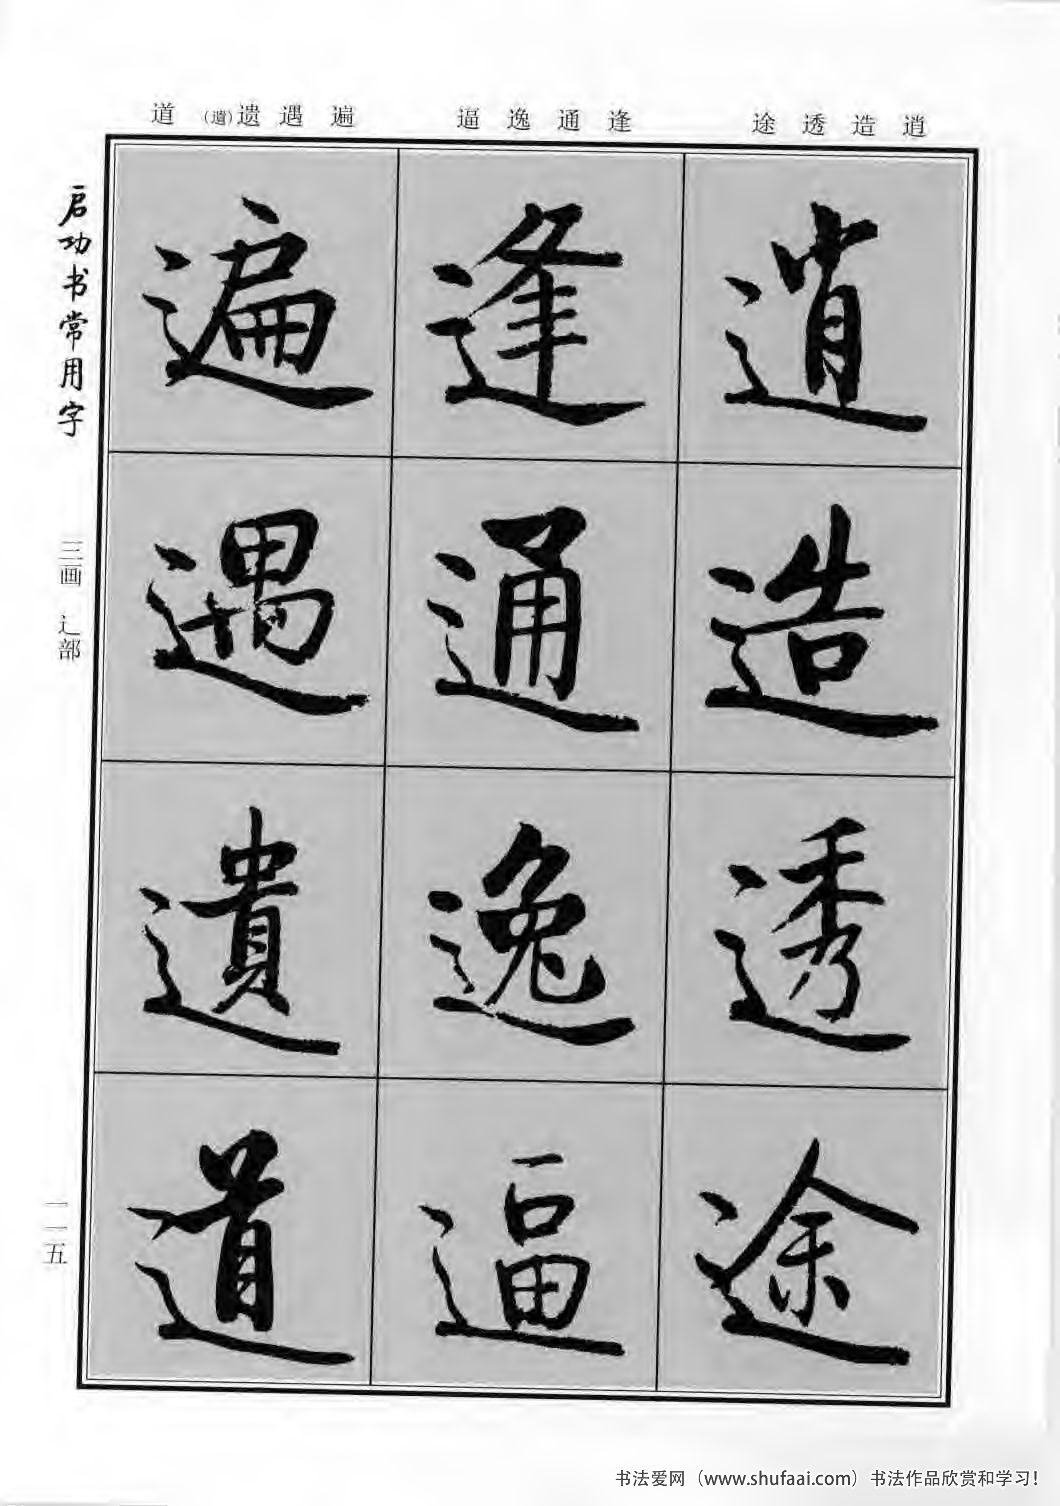 道 (遺)遗 遇 遍
逼 逸 通 逢
途 透 造 逍
启功书常用字
三画 辶部
一一五
逍
造
透
途
逢
通
逸
逼
遍
遇
遺
道
书法爱网（www.shufaai.com）书法作品欣赏和学习！